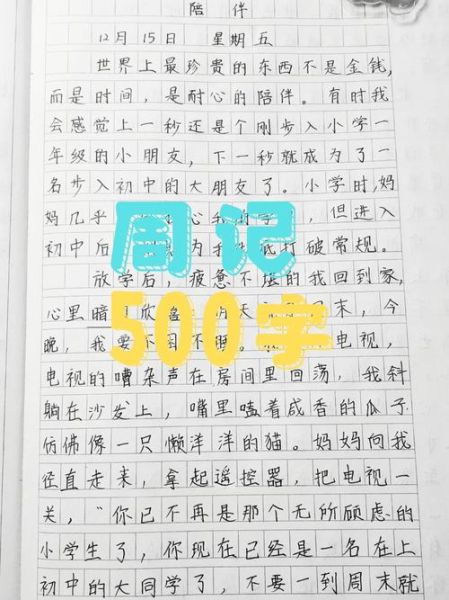 陪伴
12月15日 星期五
世界上最珍贵的东西不是金钱,
而是时间,是耐心的陪伴。有时我
会感觉上一秒还是个刚步入小学一
年级的小朋友,下一秒就成为了一
名步入初中的大朋友了。小学时,妈
妈几乎 心我的学 ,但进入
初中后 为我 底打破常规。
放学后,疲惫不堪的我回到家,
心里暗 欣 天 末,今
晚,我要不 不 电视,
电视的嘈杂声在房间里回荡,我斜
躺在沙发上,嘴里嗑着咸香的瓜子
仿佛像一只懒洋洋的猫。妈妈向我
径直走来,拿起遥控器,把电视一
关,“你已不再是那个无所顾虑的
小学生了,你现在已经是一名在上
初中的大同学了,不要一到周末就
周记
500字